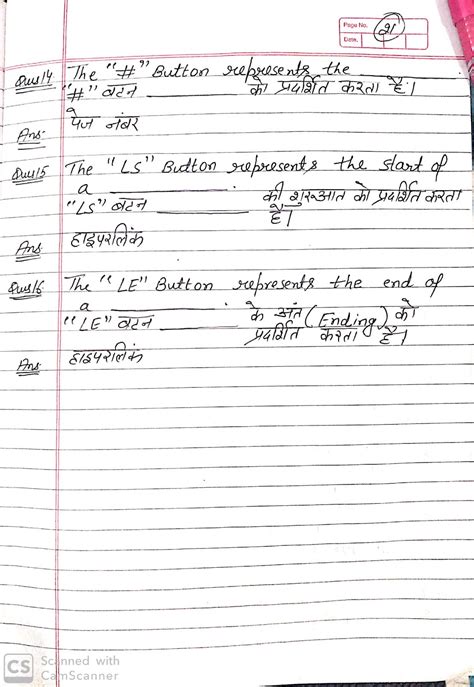 Page No. 21
Date.
Ques14 The "#" Button represents the ________
"#" बटन ________ को प्रदर्शित करता है।
Ans:- पेज नंबर
Ques15 The "LS" Button represents the start of
a ________.
"LS" बटन ________ की शुरूआत को प्रदर्शित करता
है।
Ans हाइपरलिंक
Ques16. The "LE" Button represents the end of
a ________.
"LE" बटन ________ के अंत (Ending) को
प्रदर्शित करता है।
Ans हाइपरलिंक
CS Scanned with
CamScanner